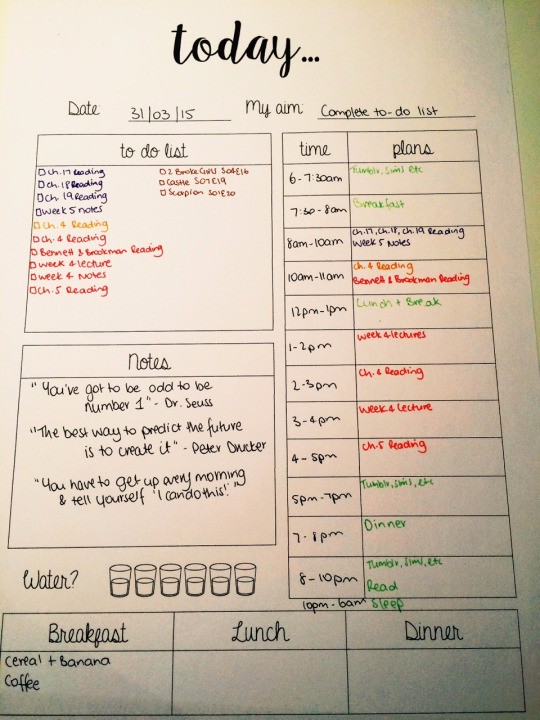 today...
Date: 31/03/15 My aim: Complete to-do list
to do list
Ch.17 Reading
Ch.18 Reading
Ch.19 Reading
Week 5 notes
Ch.4 Reading
Ch.4 Reading
Bennett & Brookman Reading
week 4 lecture
week 4 Notes
Ch.5 Reading
2 Broke Girls S04E16
Castle S07E19
Scorpion S01E20
Notes
"You've got to be odd to be
number 1" - Dr. Seuss
"The best way to predict the future
is to create it" - Peter Drucker
"You have to get up every morning
& tell yourself 'I can do this!'"
Water?
time plans
6-7:30am Tumblr, sims etc
7:30-8am Breakfast
8am-10am Ch.17, Ch.18, Ch.19 Reading
Week 5 Notes
10am-11am Ch.4 Reading
Bennett & Brookman Reading
12pm-1pm Lunch + Break
1-2pm week 4 lectures
2-3pm Ch.4 Reading
3-4pm Week 4 Lecture
4-5pm Ch.5 Reading
5pm-7pm Tumblr, sims, etc
7-8pm Dinner
8-10pm Tumblr, sims, etc
Read
10pm-6am Sleep
Breakfast Lunch Dinner
Cereal + Banana
Coffee